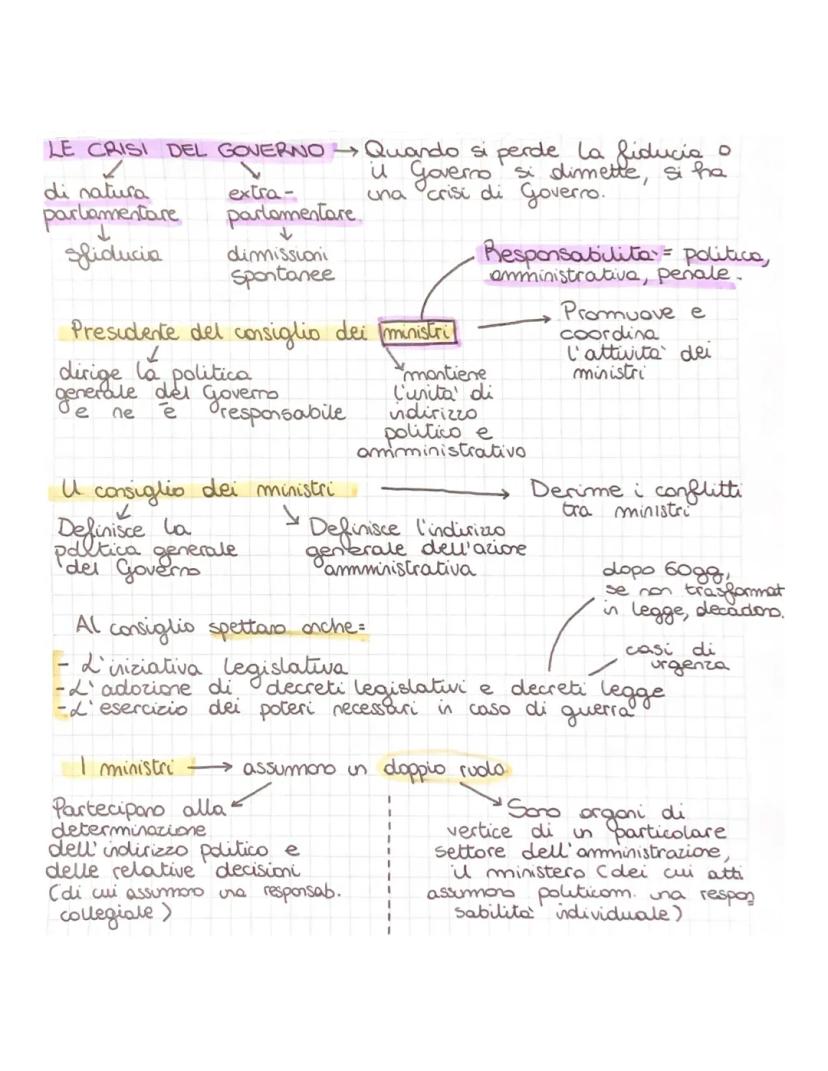 LE CRISI DEL GOVERNO → Quando si perde la fiducia o
il Governo si dimette, si ha
una crisi di Governo.
di natura
parlamentare
↓
sfiducia
extra-
parlamentare
↓
dimissioni
spontanee
Responsabilità = politica,
amministrativa, penale.
Presidente del consiglio dei ministri
Promuove e
coordina
l'attività dei
ministri
dirige la politica
generale del Governo
e ne è responsabile
mantiene
l'unità di
indirizzo
politico e
amministrativo
Il consiglio dei ministri
Derime i conflitti
tra ministri
Definisce la
politica generale
del Governo
Definisce l'indirizzo
generale dell'azione
amministrativa
dopo 60gg,
se non trasformat
in legge, decadono.
Al consiglio spettano anche:
casi di
urgenza
- L'iniziativa legislativa
- L'adozione di decreti legislativi e decreti legge
- L'esercizio dei poteri necessari in caso di guerra
I ministri → assumono un doppio ruolo
Partecipano alla
determinazione
dell'indirizzo politico e
delle relative decisioni
(di cui assumono una responsab.
collegiale)
Sono organi di
vertice di un particolare
settore dell'amministrazione,
il ministero (dei cui atti
assumono politicam. una respon
sabilità individuale)